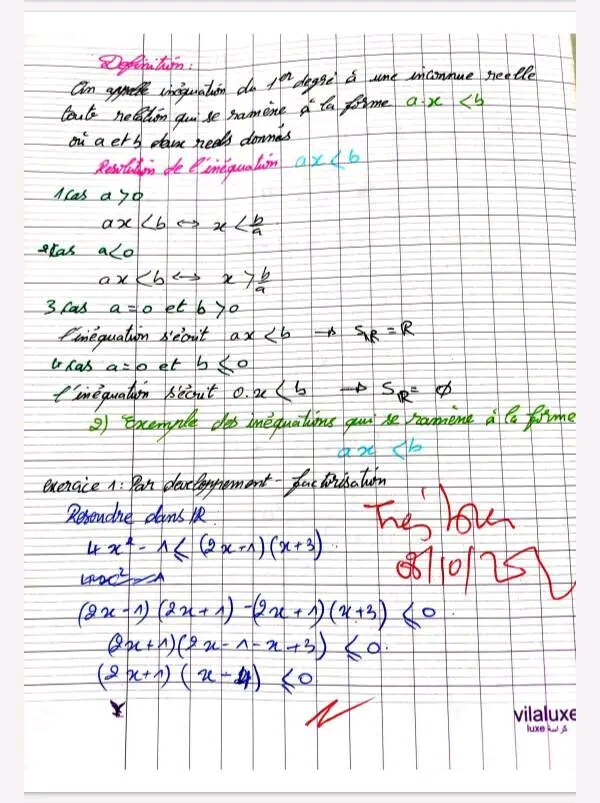 Definition:
On appelle inéquation du 1er degré à une inconnue reelle
toute relation qui se ramène à la forme a.x < b
où a et b deux reels donnés
Resolution de l'inéquation ax < b
1 cas a > 0
ax < b ↔ x < b/a
2 cas a < 0
ax < b ↔ x > b/a
3 cas a = 0 et b > 0
l'inéquation s'écrit ax < b → Sℝ = ℝ
4 cas a = 0 et b ⩽ 0
l'inéquation s'écrit 0.x < b → Sℝ = ∅
2) Exemple des inéquations qui se ramène à la forme
ax < b
exercice 1: Par developpement - factorisation
Resoudre dans ℝ.
4x² - 1 ⩽ (2x-1)(x+3)
4x²
(2x-1)(2x+1) - (2x+1)(x+3) ⩽ 0.
(2x+1)(2x-1-x+3) ⩽ 0.
(2x+1)(x-4) ⩽ 0
Très bien
08/10/25
vilaluxe
luxe كراسة